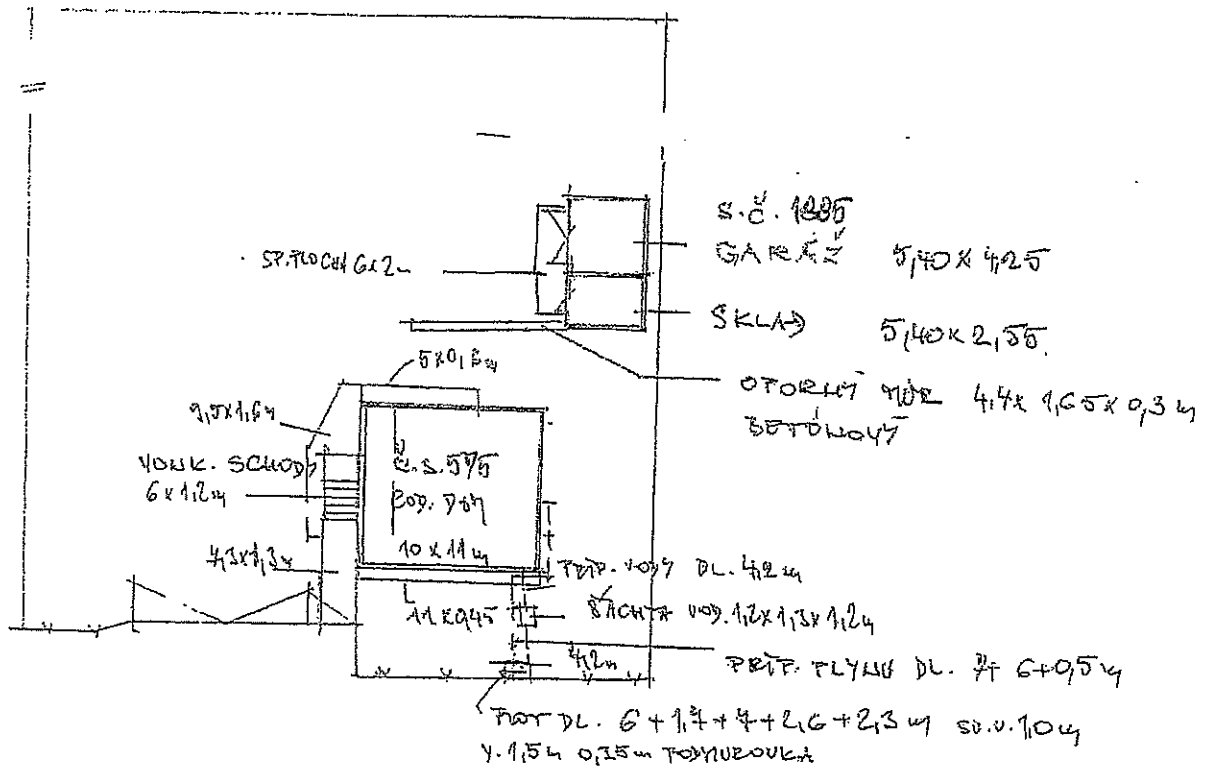 S.Č. 1885
GARÁŽ 5,40 x 4,25
SP. PLOCHA 6x2m
SKLAD 5,40 x 2,55.
OPORNÝ MÚR 4,4 x 1,65 x 0,3 m
BETÓNOVÝ
VONK. SCHODY
6 x 1,2 m
Č.S. 575
ROD. DOM
10 x 11 m
PRÍP. VODY DL. 4,2 m
11 x 0,45
ŠACHTA VOD. 1,2 x 1,3 x 1,2 m
4,2m
PRÍP. PLYNU DL. 6+0,5 m
PLOT DL. 6 + 1,7 + 7 + 2,6 + 2,3 m SV.V. 1,0 m
V. 1,5 m 0,35 m PODMUROVKA